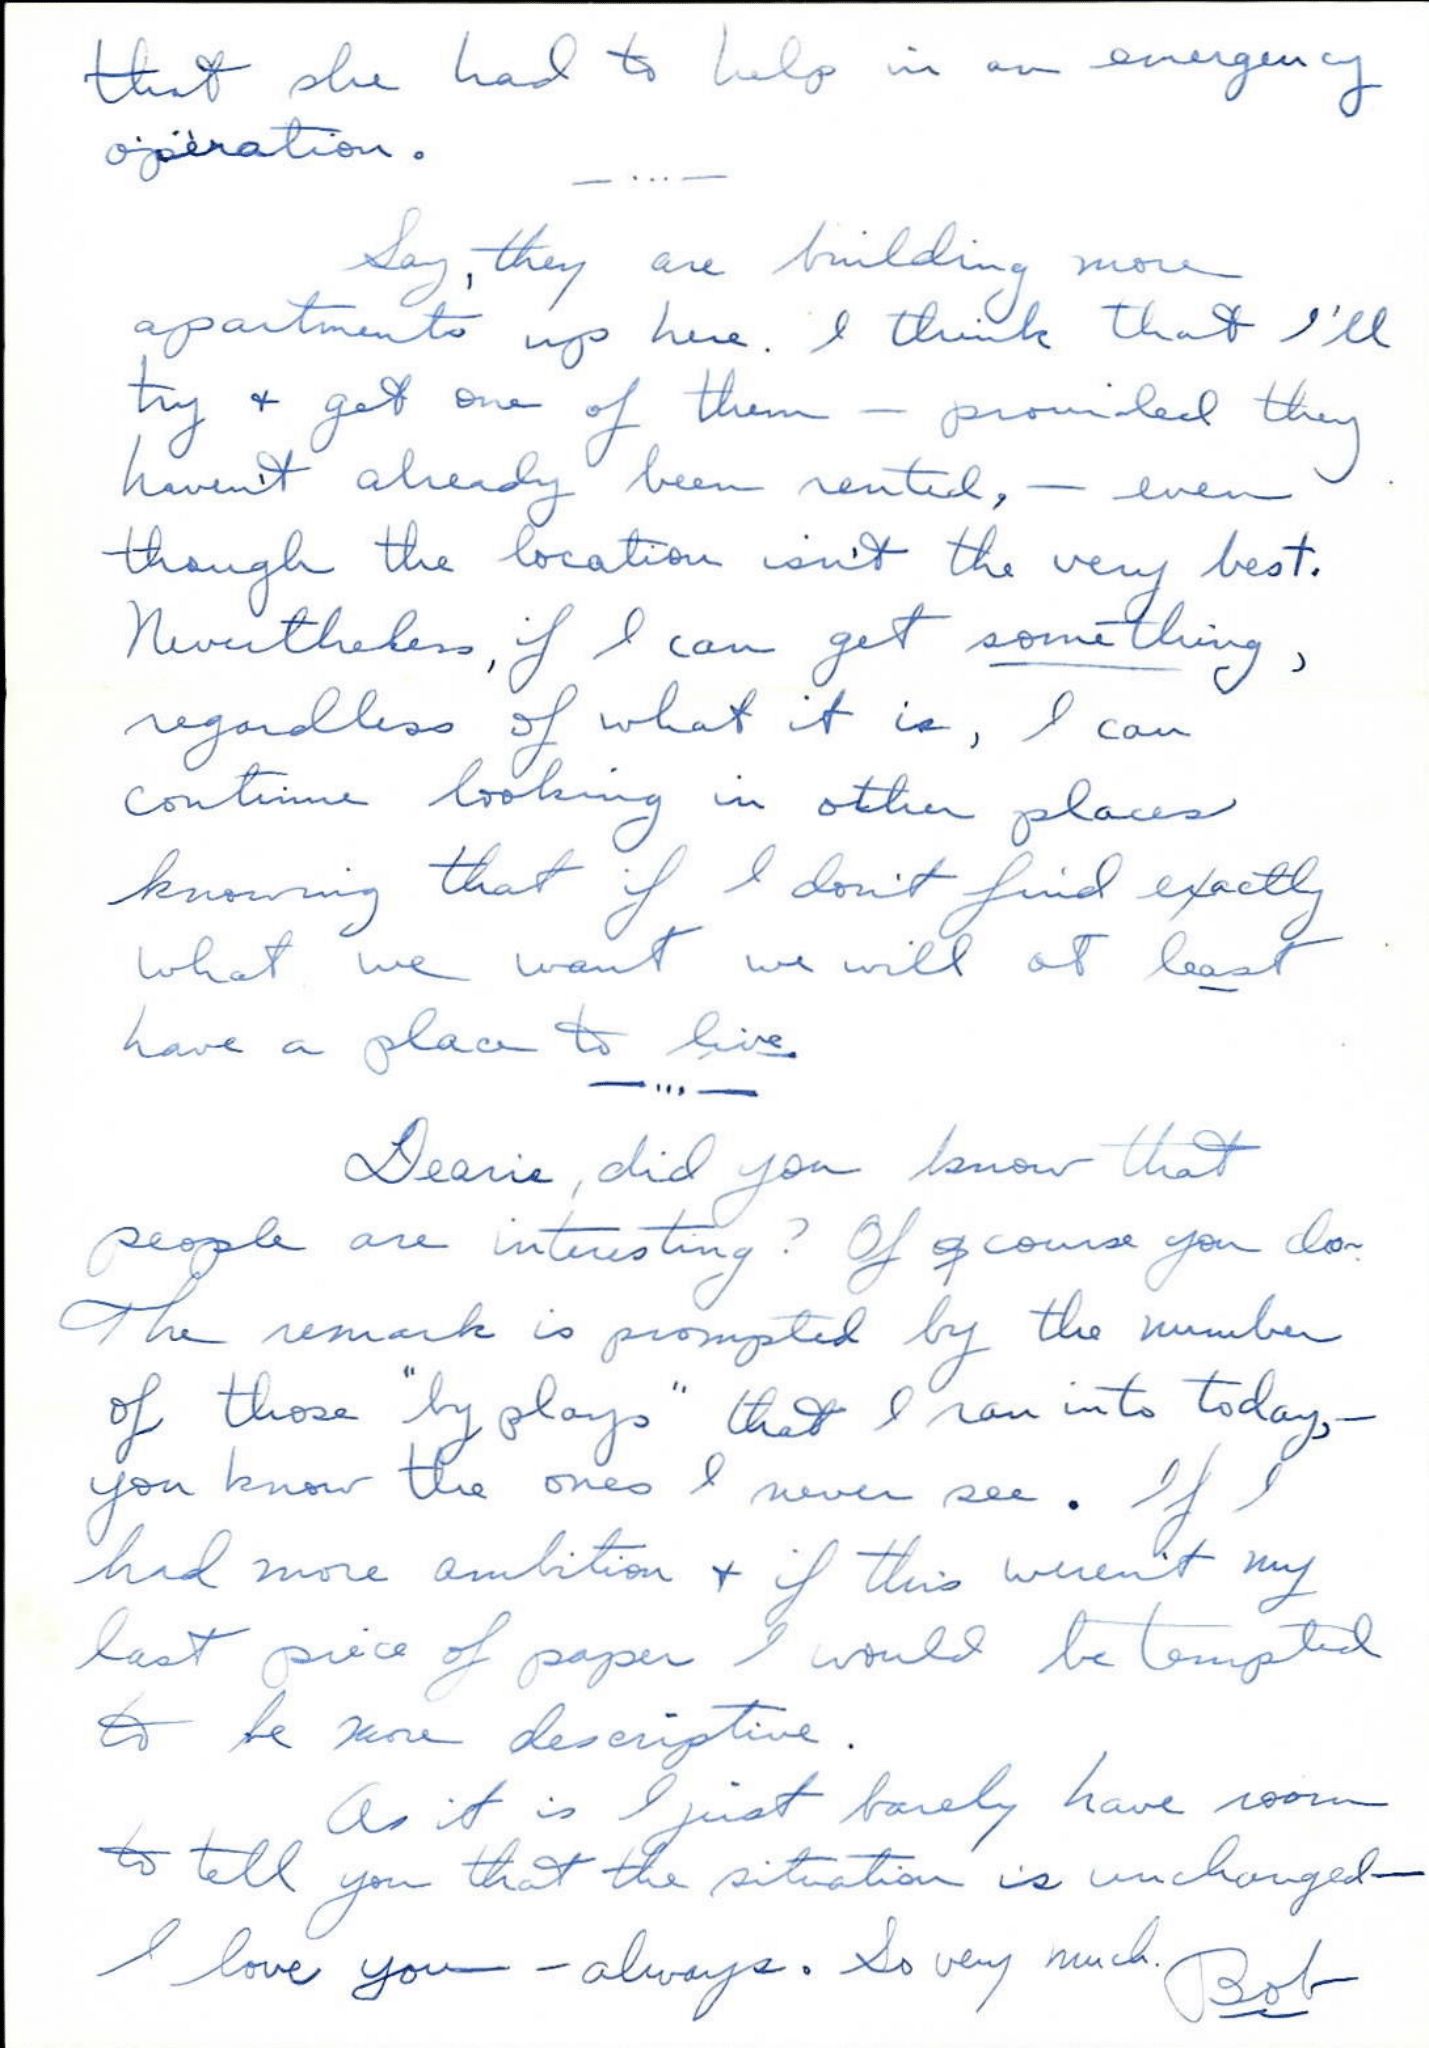 that she had to help in an emergency
operation.
— ... —
Say, they are building more
apartments up here. I think that I'll
try + get one of them — provided they
haven't already been rented, — even
though the location isn't the very best.
Nevertheless, if I can get something,
regardless of what it is, I can
continue looking in other places
knowing that if I don't find exactly
what we want we will at least
have a place to live.
— ... —
Dearie, did you know that
people are interesting? Of course you do.
The remark is prompted by the number
of those "by plays" that I ran into today, —
you know the ones I never see. If I
had more ambition + if this weren't my
last piece of paper I would be tempted
to be more descriptive.
As it is I just barely have room
to tell you that the situation is unchanged —
I love you — always. So very much.
Bob